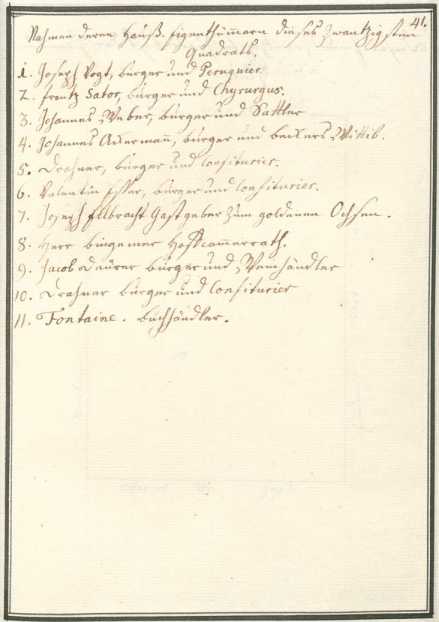 41.
Nahmen deren Hauß-Eigenthümmern dieses Zwantzigsten
Quadrats.
1. Joseph Vogt, bürger und Peruquier.
2. Frantz Sator, bürger und Chyrurgus.
3. Johannes Weber, bürger und Sattler
4. Johannes Ackermann, bürger und beckers Wittib.
5. bürger und Confiturier.
6. Valentin bürger und Confiturier.
7. Joseph Gastgeber zum goldenen Ochsen.
8. Herr Hoffcammerrath.
9. Jacob bürger und Weinhändler
10. bürger und Confiturier
11. Fontaine. buchhändler.